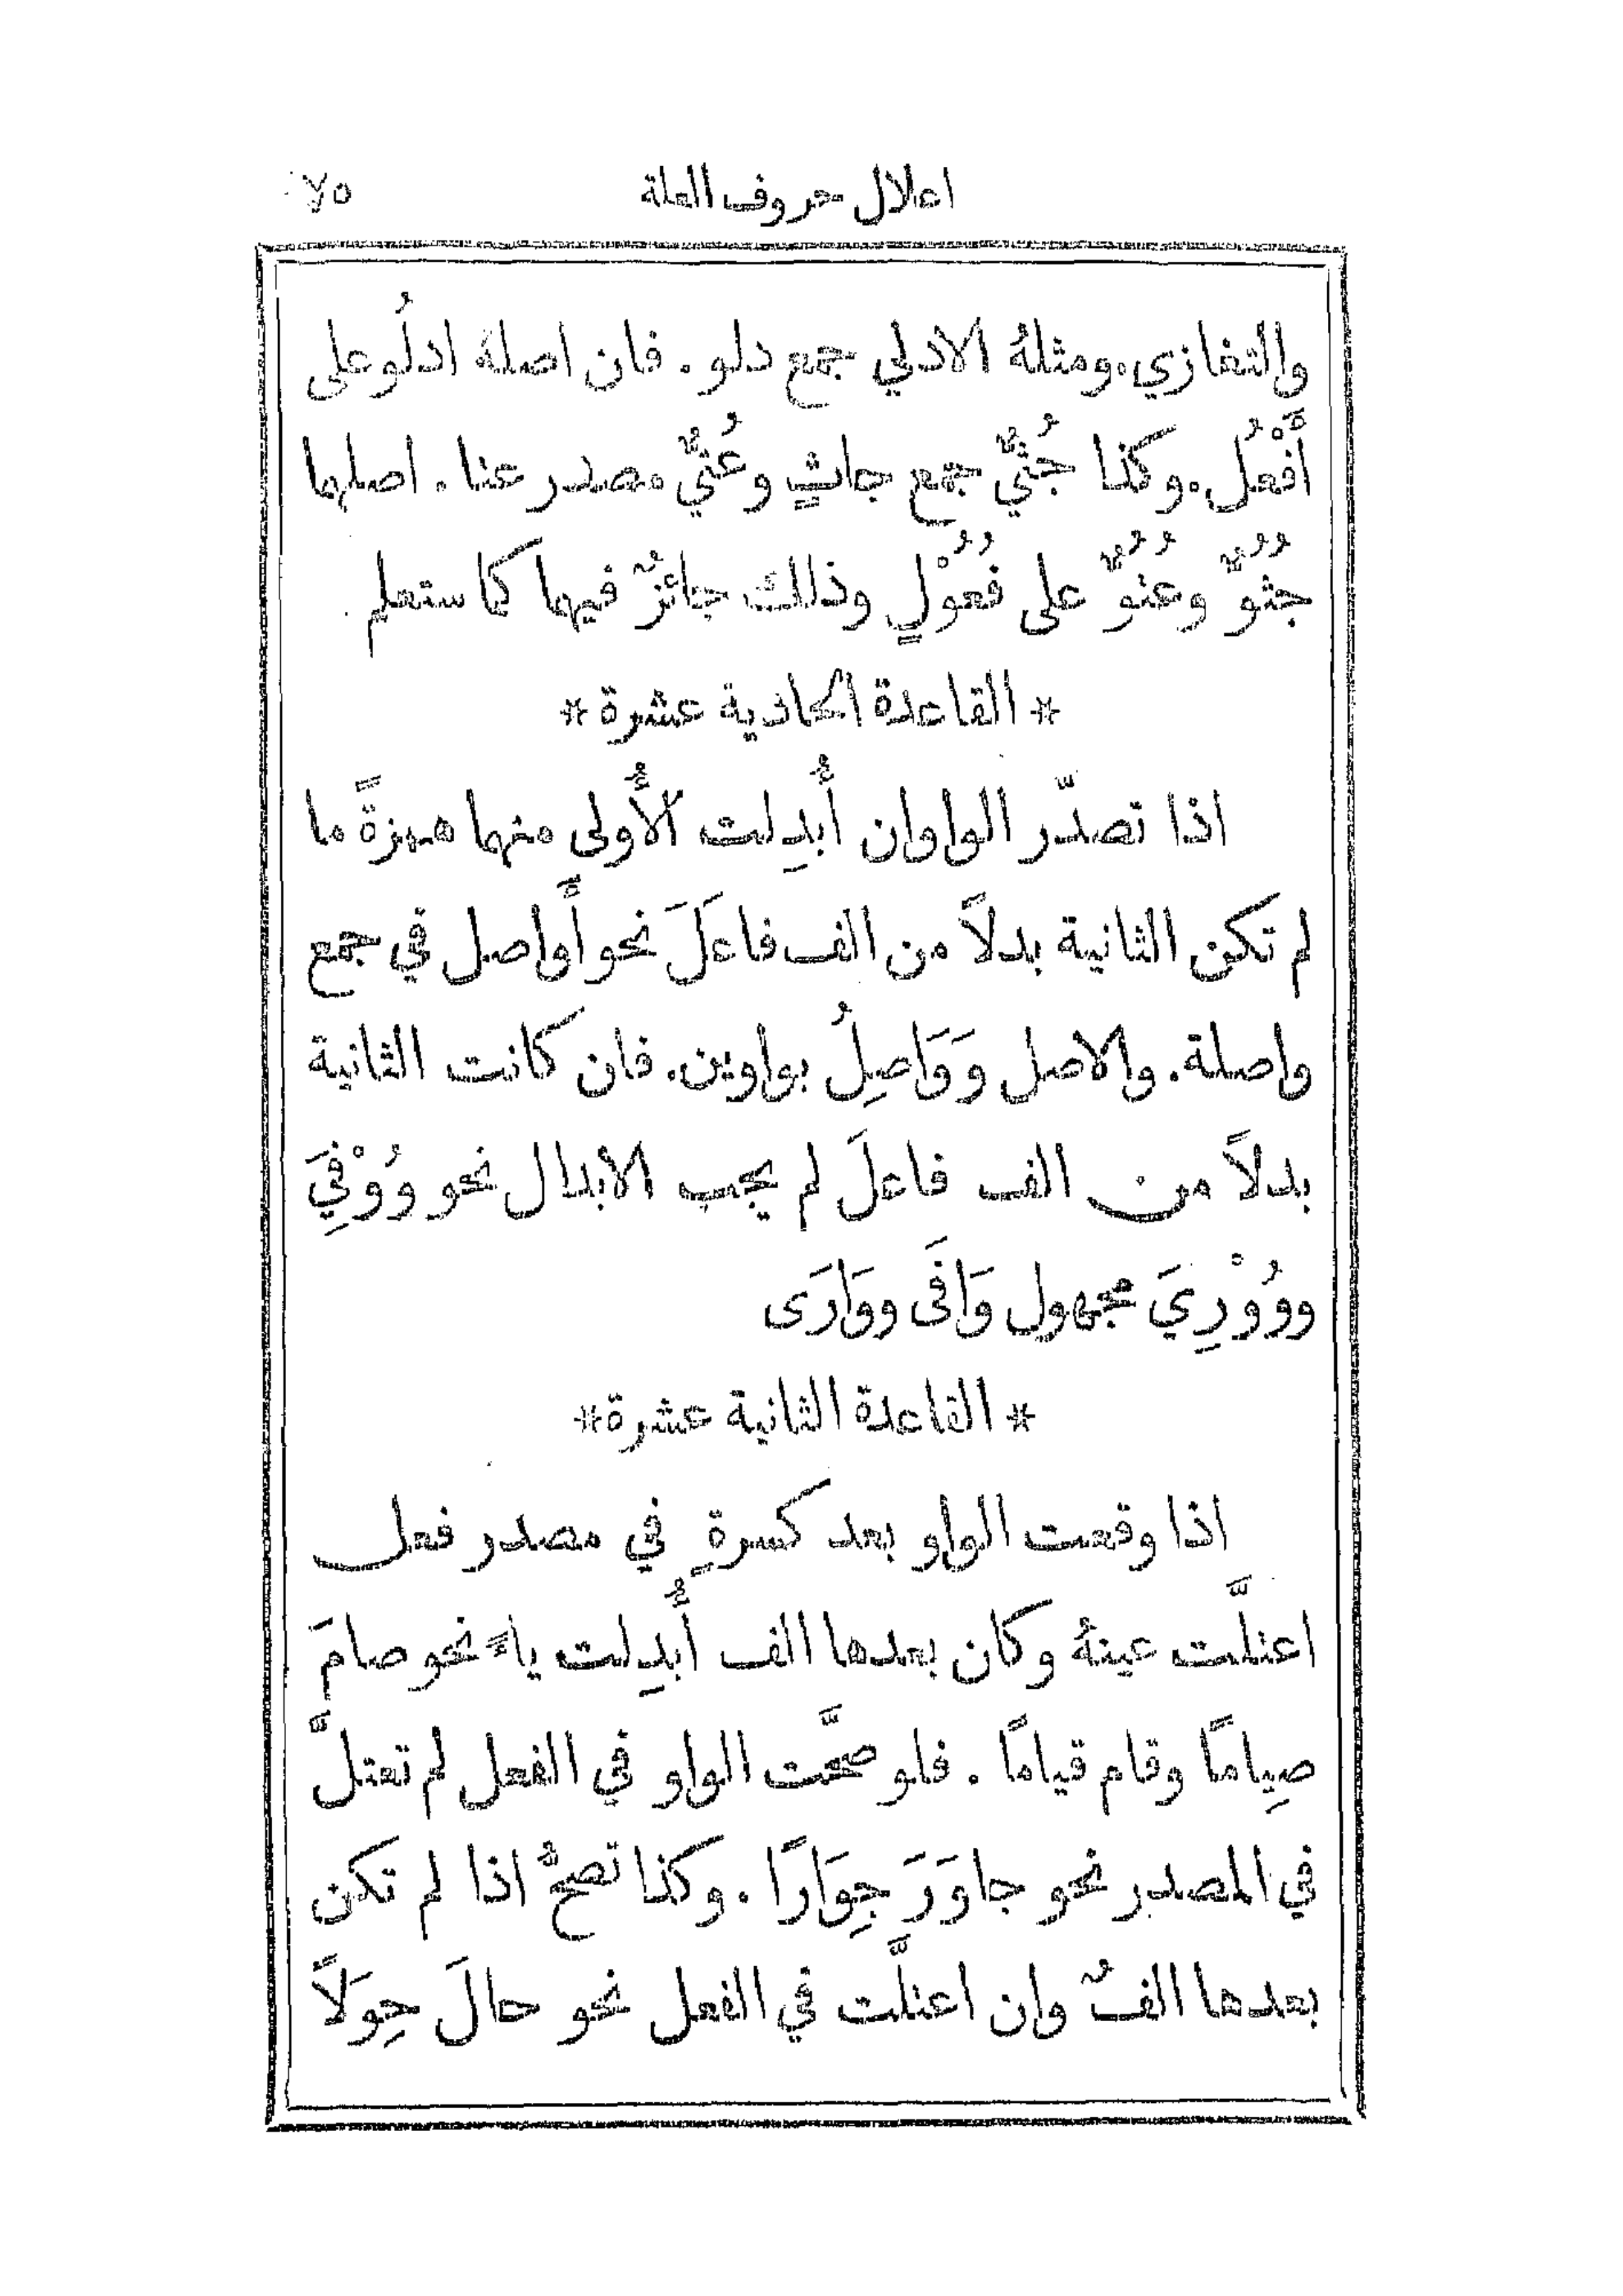 اعلال حروف العلة ٧٥
والتغازي. ومثلهُ الادلي جمع دلو. فان اصلهُ ادلُو على
أَفْعُل. وكذا جُثيٌّ جمع جاثٍ وعُتيٌّ مصدر عتا. اصلهما
جُثُوٌّ وعُتُوٌّ على فُعُوْلٍ وذلك جائزٌ فيهما كما ستعلم
* القاعدة الحادية عشرة *
اذا تصدّر الواوان أُبدِلت الأُولى منهما همزةً ما
لم تكن الثانية بدلاً من الف فاعَلَ نحو أَواصل في جمع
واصلة. والاصل وَوَاصِلُ بواوين. فان كانت الثانية
بدلاً من الف فاعلَ لم يجب الابدال نحو وُوْفِيَ
ووُوْرِيَ مجهول وَافَى ووَارَى
* القاعدة الثانية عشرة *
اذا وقعت الواو بعد كسرةٍ في مصدر فعل
اعتلَّت عينهُ وكان بعدها الف أُبدِلت ياءً نحو صامَ
صِيامًا وقام قيامًا. فلو صحَّت الواو في الفعل لم تعتلَّ
في المصدر نحو جاوَرَ جِوَارًا. وكذا تصحُّ اذا لم تكن
بعدها الفٌ وان اعتلَّت في الفعل نحو حالَ حِوَلاً